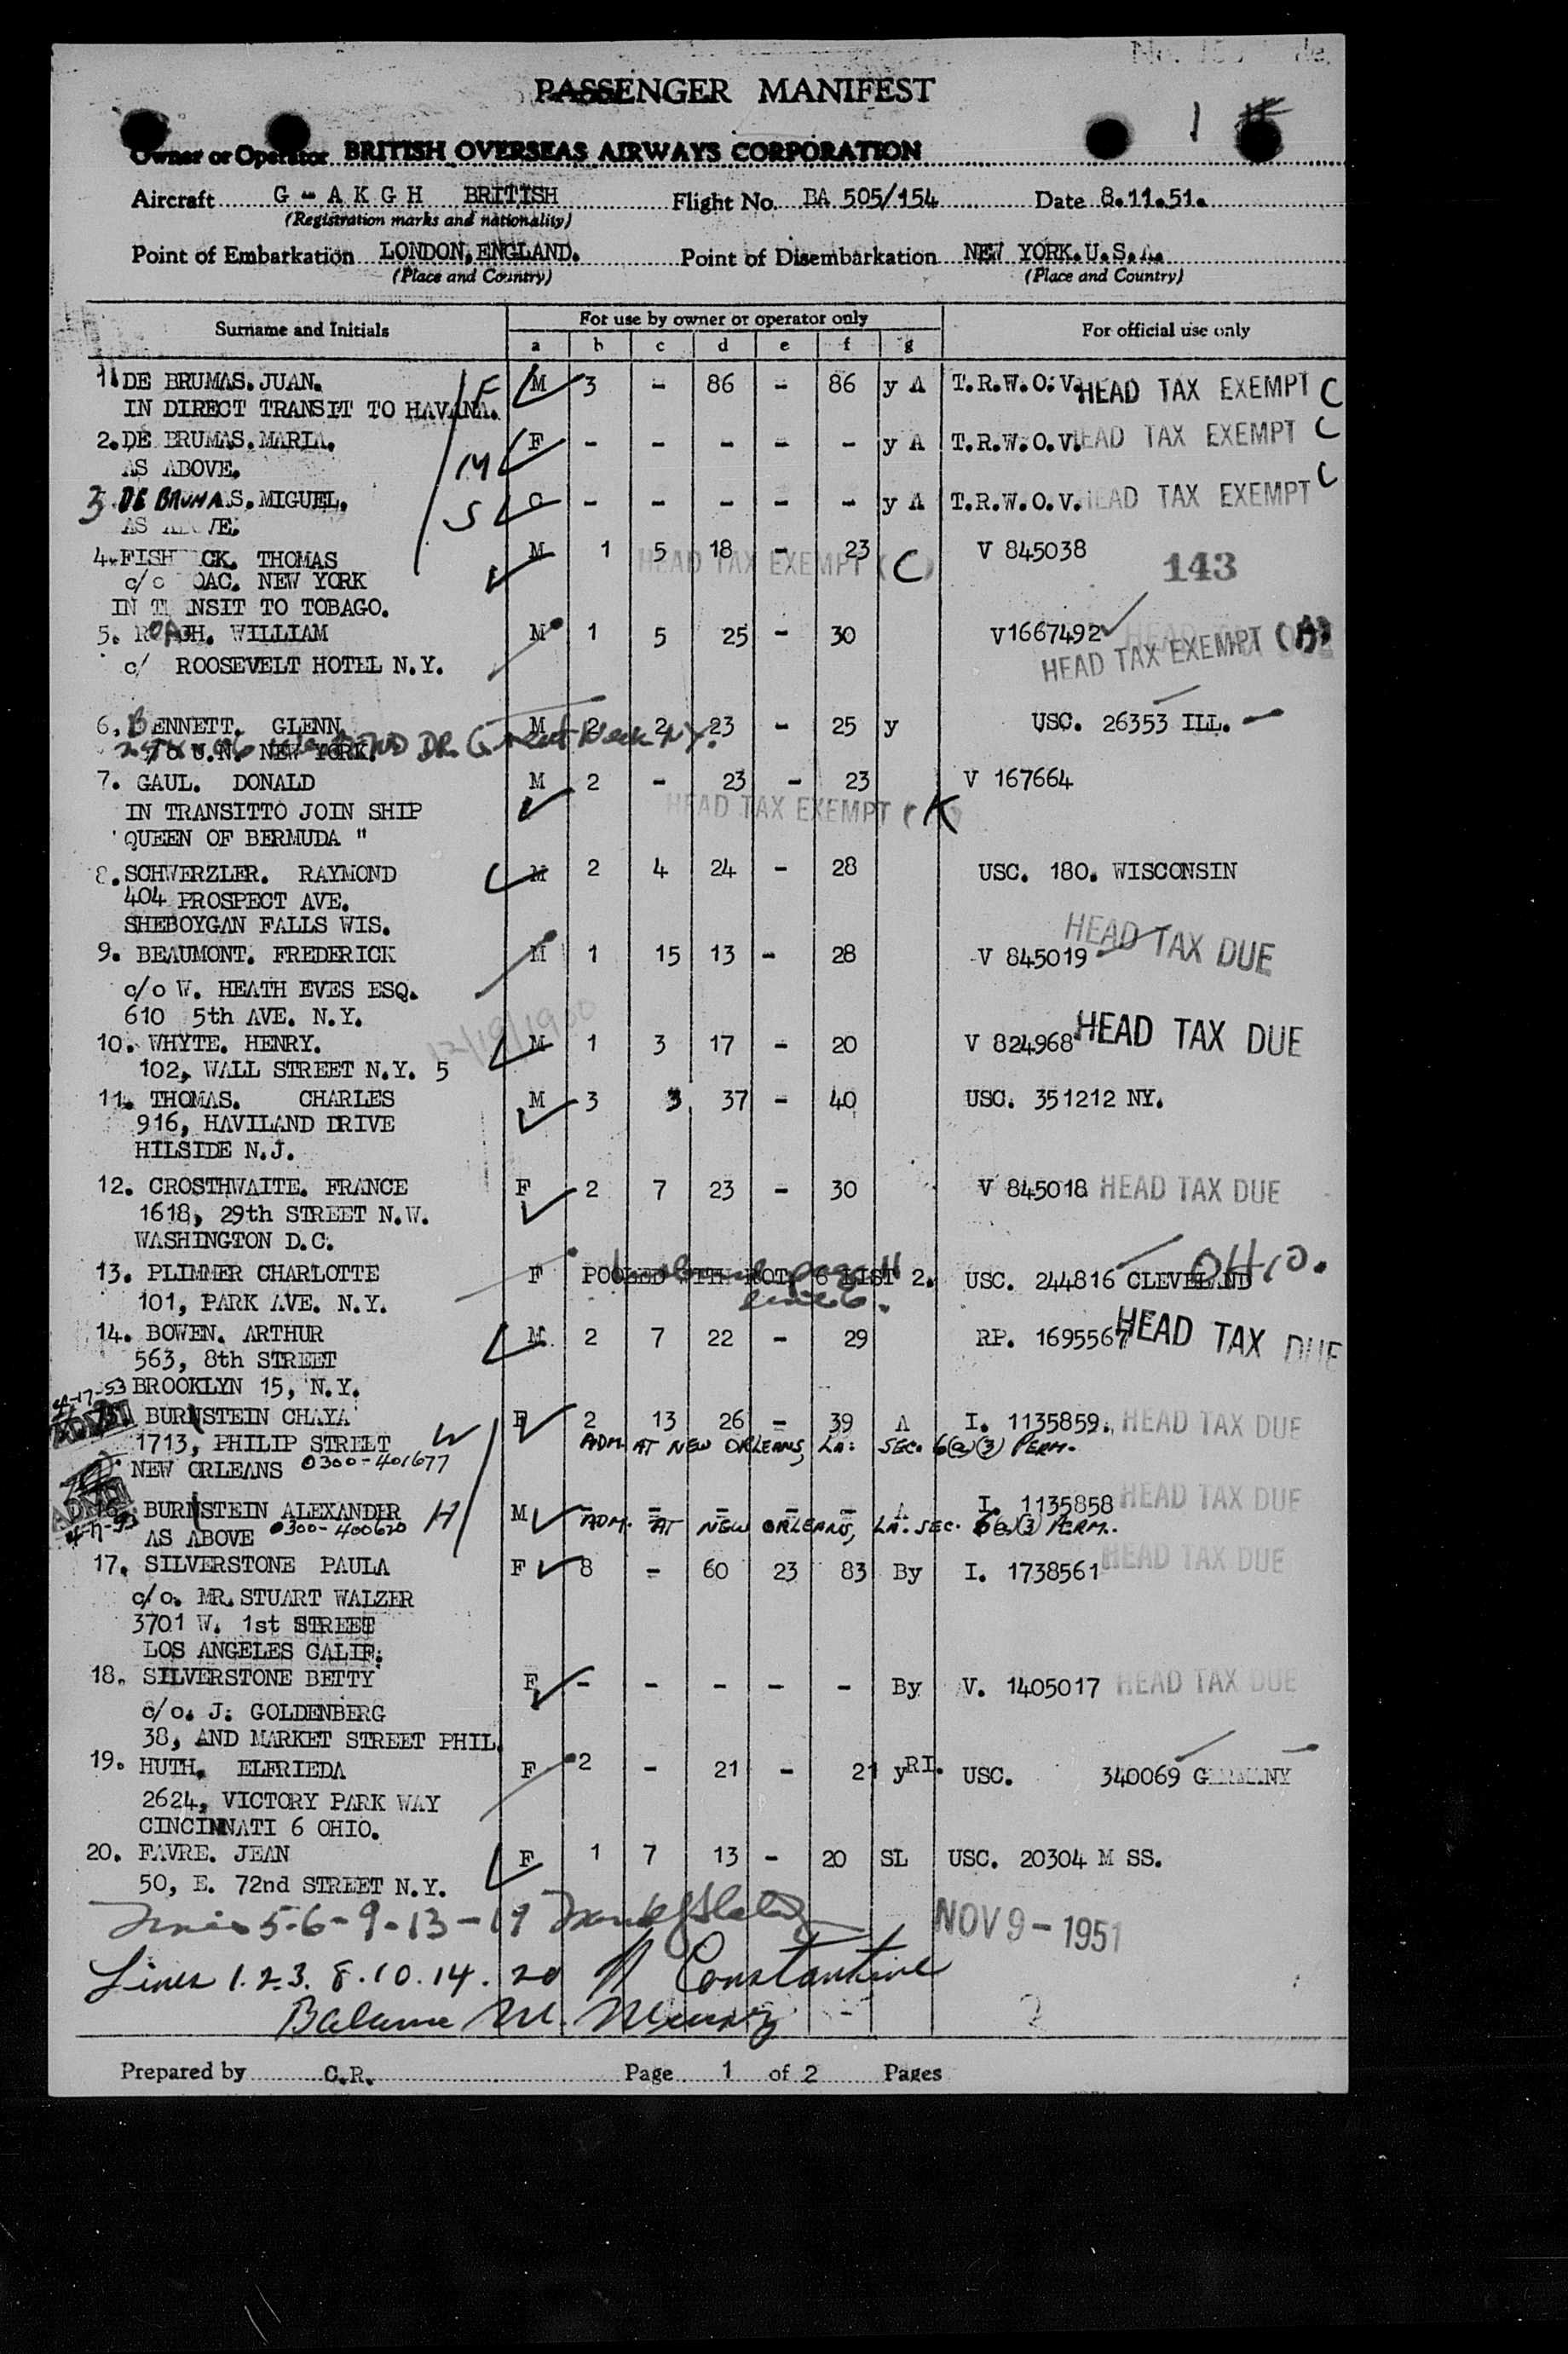 PASSENGER MANIFEST
1
Owner or Operator BRITISH OVERSEAS AIRWAYS CORPORATION
Aircraft G - A K G H BRITISH Flight No. BA 505/154 Date 8.11.51.
(Registration marks and nationality)
Point of Embarkation LONDON, ENGLAND. Point of Disembarkation NEW YORK. U.S.A.
(Place and Country) (Place and Country)
Surname and Initials For use by owner or operator only For official use only
a b c d e f g
1. DE BRUMAS. JUAN. F M 3 - 86 - 86 y A T.R.W.O.V. HEAD TAX EXEMPT C
IN DIRECT TRANSIT TO HAVANA.
2. DE BRUMAS. MARIA. M F - - - - - y A T.R.W.O.V. HEAD TAX EXEMPT C
AS ABOVE.
3. DE BRUMAS. MIGUEL. S C - - - - - y A T.R.W.O.V. HEAD TAX EXEMPT C
AS
4. THOMAS M 1 5 18 - 23 V 845038
HEAD TAX EXEMPT (C) 143
c/o NEW YORK
IN TO TOBAGO.
5. WILLIAM M 1 5 25 - 30 V1667492
HEAD TAX EXEMPT (A)
ROOSEVELT HOTEL N.Y.
6. BENNETT. GLENN. M 2 2 23 - 25 y USC. 26353 ILL.
U.N. NEW YORK. DR. Great Neck N.Y.
7. GAUL. DONALD M 2 - 23 - 23 V 167664
IN TRANSITTO JOIN SHIP HEAD TAX EXEMPT (K)
'QUEEN OF BERMUDA "
8. SCHWERZLER. RAYMOND M 2 4 24 - 28 USC. 180. WISCONSIN
404 PROSPECT AVE.
SHEBOYGAN FALLS WIS.
9. BEAUMONT. FREDERICK M 1 15 13 - 28 V 845019 HEAD TAX DUE
c/o W. HEATH EVES ESQ.
610 5th AVE. N.Y.
12/19/1900
10. WHYTE. HENRY. M 1 3 17 - 20 V 824968 HEAD TAX DUE
102, WALL STREET N.Y. 5
11. THOMAS. CHARLES M 3 3 37 - 40 USC. 351212 NY.
916, HAVILAND DRIVE
HILSIDE N.J.
12. CROSTHWAITE. FRANCE F 2 7 23 - 30 V 845018 HEAD TAX DUE
1618, 29th STREET N.W.
WASHINGTON D.C.
13. PLIMMER CHARLOTTE F POOLED WTH 6 LIST 2. USC. 244816 CLEVELAND OHIO.
101, PARK AVE. N.Y.
14. BOWEN. ARTHUR M 2 7 22 - 29 RP. 1695567 HEAD TAX DUE
563, 8th STREET
BROOKLYN 15, N.Y.
BURNSTEIN CHAYA W F 2 13 26 - 39 A I. 1135859. HEAD TAX DUE
1713, PHILIP STREET ADM. AT NEW ORLEANS, LA: SEC. 6(a)(3) PERM.
NEW ORLEANS 0300-401677
BURNSTEIN ALEXANDER H M - - - - - A I. 1135858 HEAD TAX DUE
AS ABOVE 0300-400620 ADM. AT NEW ORLEANS, LA. SEC. 6(a)(3) PERM.
17. SILVERSTONE PAULA F 8 - 60 23 83 By I. 1738561 HEAD TAX DUE
c/o. MR. STUART WALZER
3701 W. 1st STREET
LOS ANGELES CALIF.
18. SILVERSTONE BETTY F - - - - - By V. 1405017 HEAD TAX DUE
c/o. J. GOLDENBERG
38, AND MARKET STREET PHIL.
19. HUTH. ELFRIEDA F 2 - 21 - 21 yRI. USC. 340069 GERMANY
2624, VICTORY PARK WAY
CINCINNATI 6 OHIO.
20. FAVRE. JEAN F 1 7 13 - 20 SL USC. 20304 M SS.
50, E. 72nd STREET N.Y.
5-6-9-13-19 NOV 9 - 1951
Lines 1.2.3. 8.10.14.20 Constantine
Balance M.
Prepared by C.R. Page 1 of 2 Pages